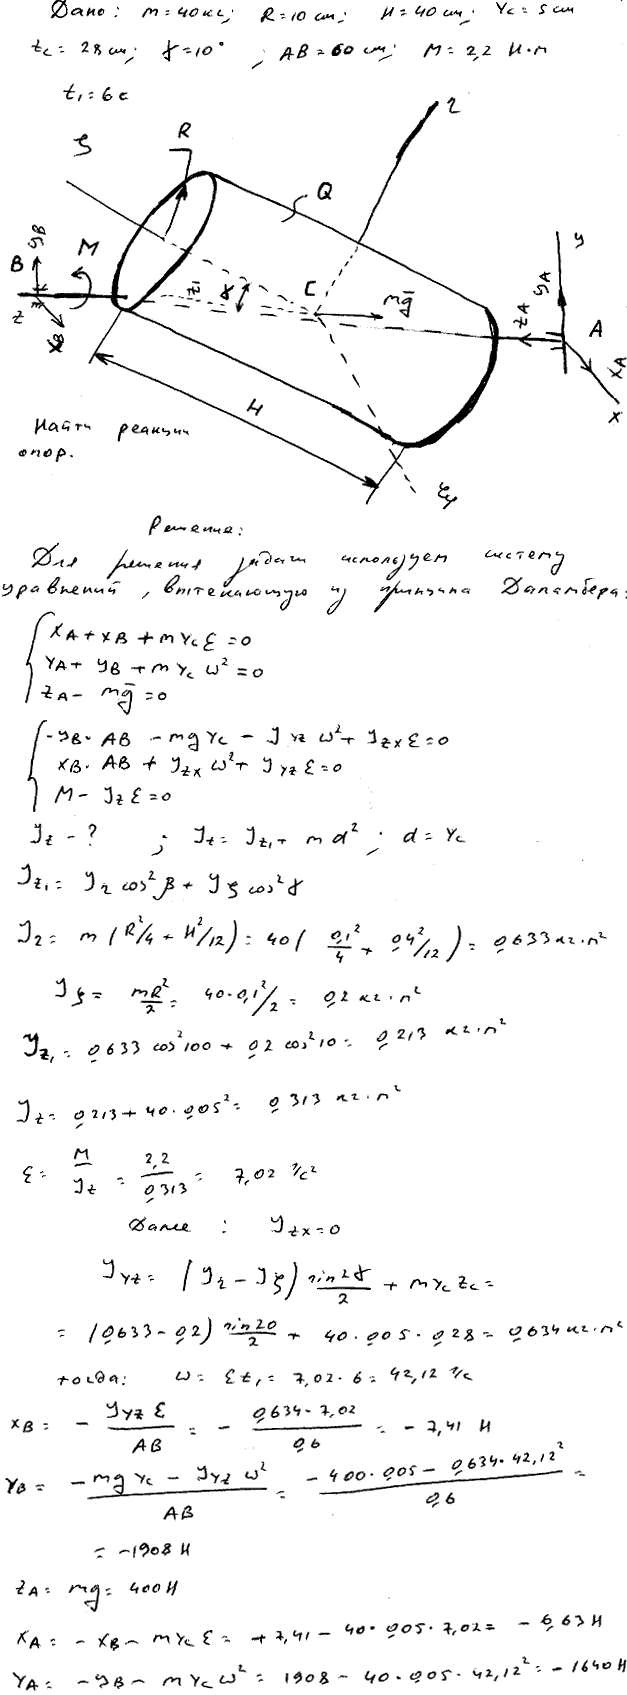 Дано: m=40кг; R=10 cm; H=40 cm; Yc=5cm
zc=28cm; γ=10° ; AB=60 cm; M=2,2 Н·м
t₁=6c
2
ζ
R
Q
y
B
yB
M
C
mg̅
zA
yA
A
z
xB
z₁
γ
xA
x
H
Найти реакции
опор.
Решение:
Для решения задачи используем систему
уравнений, вытекающую из принципа Даламбера:
XA+XB+mYcε=0
YA+yB+mYc ω²=0
zA- mg̅=0
-yB·AB -mgYc - Jyz ω²+Jzxε=0
xB·AB + Jzx ω²+ Jyz ε=0
M- Jzε=0
Jz-? ; Jz=Jz₁+ md²; d=Yc
Jz₁= J₂ cos²β+ Jζ cos²γ
J₂= m(R²/4+H²/12)=40( 0,1²/4 + 0,4²/12)= 0,633 кг·м²
Jζ= mR²/2= 40·0,1²/2= 0,2 кг·м²
Jz₁= 0,633 cos²100 + 0,2 cos²10= 0,213 кг·м²
Jz= 0,213+40·0,05²= 0,313 кг·м²
ε= M/Jz = 2,2/0,313 = 7,02 1/c²
Далее : Jzx=0
Jyz= (J₂-Jζ) sin2γ/2 + mYc zc=
= (0,633-0,2) sin20/2 + 40·0,05·0,28= 0,634кг·м²
тогда: ω= εt₁= 7,02·6=42,12 1/c
XB= - Jyz ε/AB = - 0,634·7,02/0,6 = -7,41 Н
YB= -mgYc - Jyz ω²/AB = -400·0,05 - 0,634·42,12²/0,6 =
= -1908 Н
zA= mg= 400Н
XA= -XB- mYcε= +7,41- 40·0,05·7,02= - 6,63Н
YA= -yB- mYcω²= 1908 - 40·0,05·42,12²= -1640Н